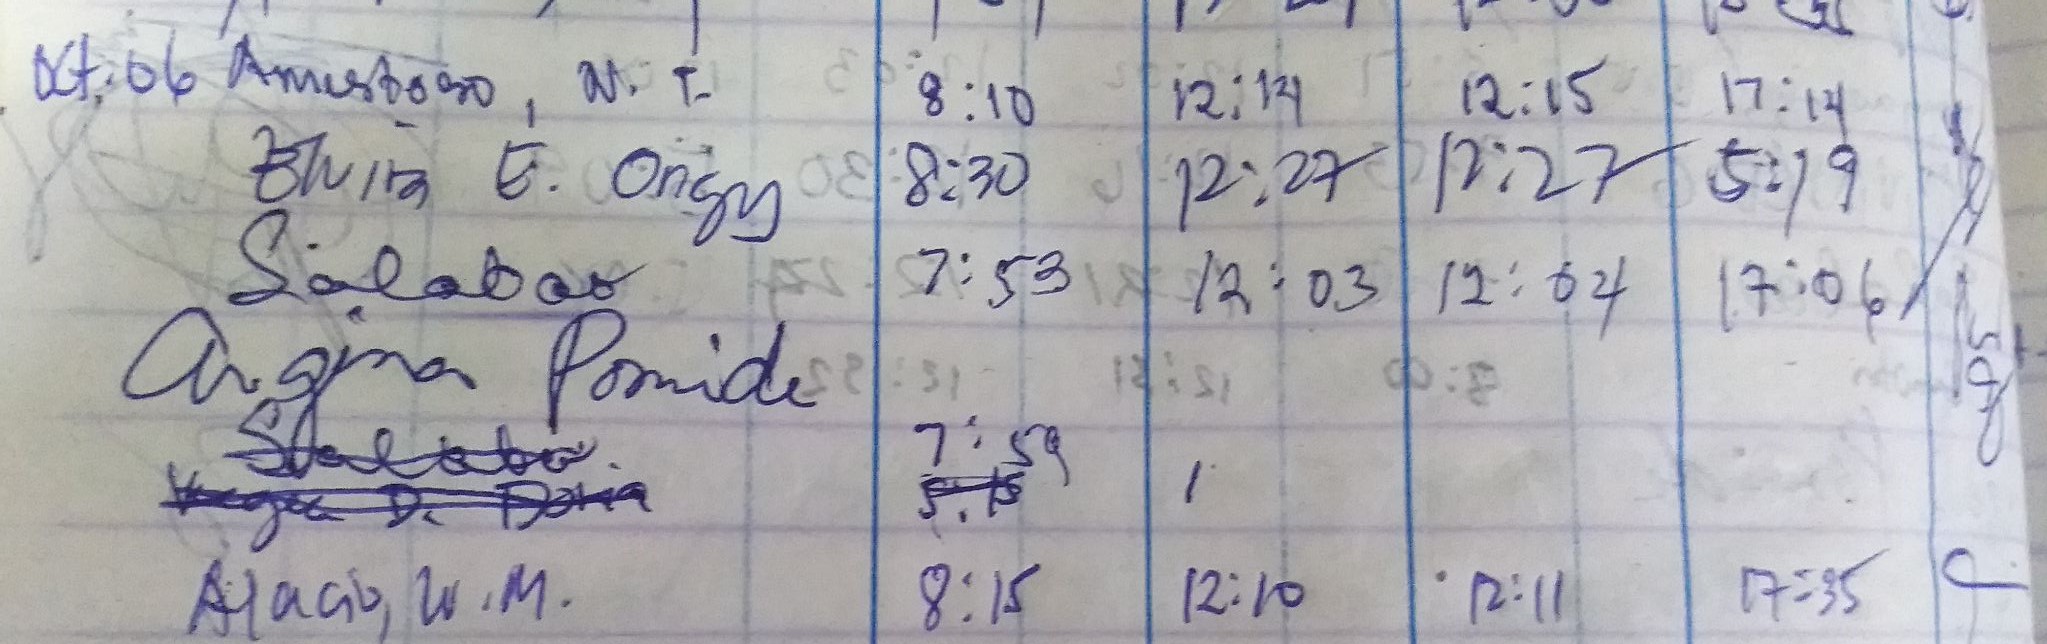 Oct. 06 Amustoso, N. T. 8:10 12:14 12:15 17:14
Elvira E. Ongy 8:30 12:27 12:27 5:19
Salabao 7:53 12:03 12:04 17:06
Argina Pomida
7:59
D.
5:15
Ajacio, W. M. 8:15 12:10 12:11 17:35